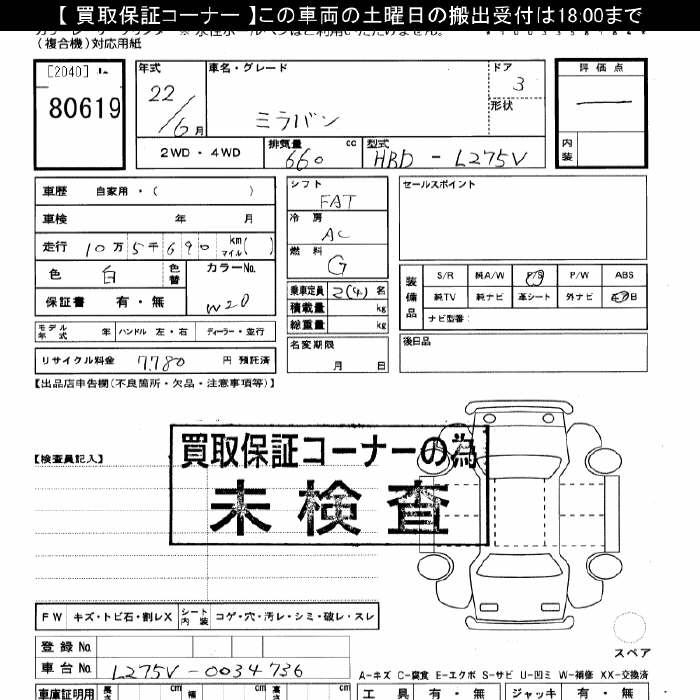 【 買取保証コーナー 】この車両の土曜日の搬出受付は18:00まで
(複合機)対応用紙
[2040]
80619
年式 22/6月
車名・グレード ミラバン
ドア 3
形状
評価点 —
内装
2WD・4WD
排気量 660 cc
型式 HBD - L275V
車歴 自家用・( )
車検 年 月
走行 10万5千690 km マイル( )
色 白 色替
カラーNo. W20
保証書 有・無
モデル年式 年 ハンドル 左・右 ディーラー・並行
リサイクル料金 7780 円 預託済
シフト FAT
冷房 AC
燃料 G
乗車定員 2(4) 名
積載量 kg
総重量 kg
名変期限 月 日
セールスポイント
装備品
S/R 純A/W P/S P/W ABS
純TV 純ナビ 革シート 外ナビ
ナビ型番:
後日品
【出品店申告欄(不良箇所・欠品・注意事項等)】
【検査員記入】
買取保証コーナーの為
未検査
FW キズ・トビ石・割レX シート内装 コゲ・穴・汚レ・シミ・破レ・スレ
登録No.
車台No. L275V-0034736
スペア
A-キズ C-腐食 E-エクボ S-サビ U-凹ミ W-補修 XX-交換済
車庫証明用 長さ cm 幅 cm 高さ cm
工具 有・無 ジャッキ 有・無